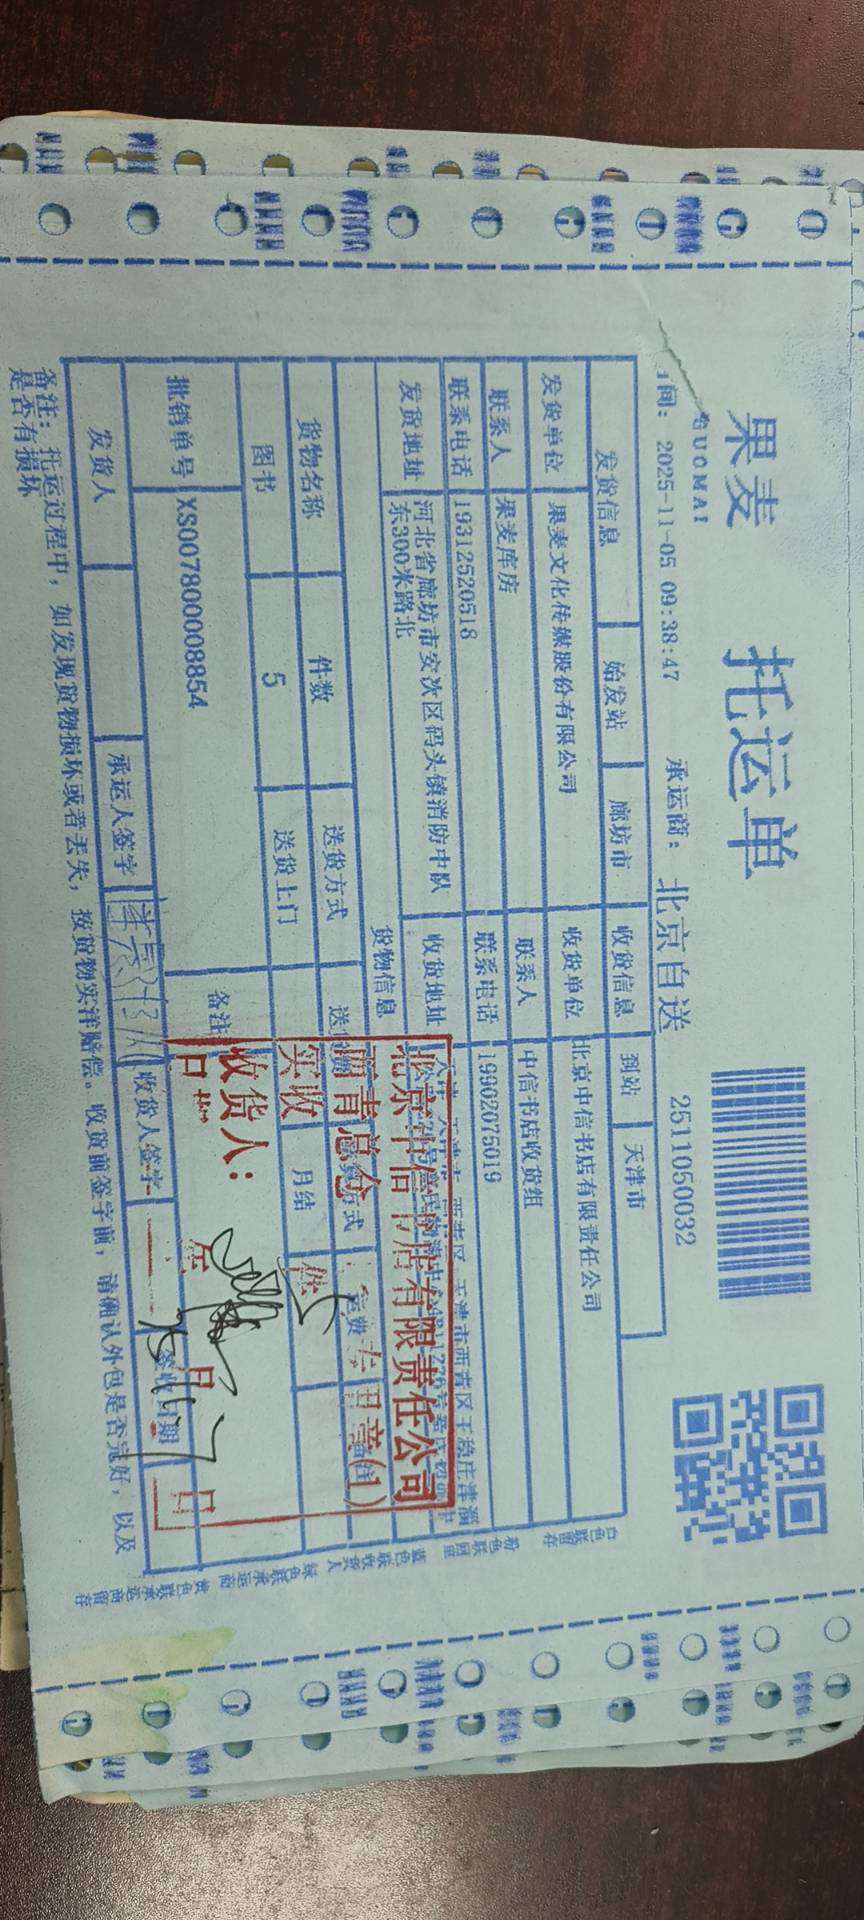 果麦
GUOMAI
托运单
2511050032
间: 2025-11-05 09:38:47
承运商: 北京自送
发货信息 始发站 廊坊市 收货信息 到站 天津市
发货单位 果麦文化传媒股份有限公司 收货单位 北京中信书店有限责任公司
联系人 果麦库房 联系人 中信书店收货组
联系电话 19312520518 联系电话 19902075019
发货地址 河北省廊坊市安次区码头镇消防中队东300米路北 收货地址
货物信息
货物名称 件数 送货方式 运费
图书 5 送货上门 月结
批销单号 XS00780008854 备注
发货人 承运人签字 收货人签字 签收日期
备注: 托运过程中, 如发现货物损坏或者丢失, 按货物实洋赔偿。收货前签字前, 请确认外包是否完好, 以及
是否有损坏
北京中信书店有限责任公司
西青总仓
专用章(1)
实收 件
收货人:
日期 年 月 日
白色联留存
粉色联回单
蓝色联收货人
绿色联承运商
黄色联承运商留存